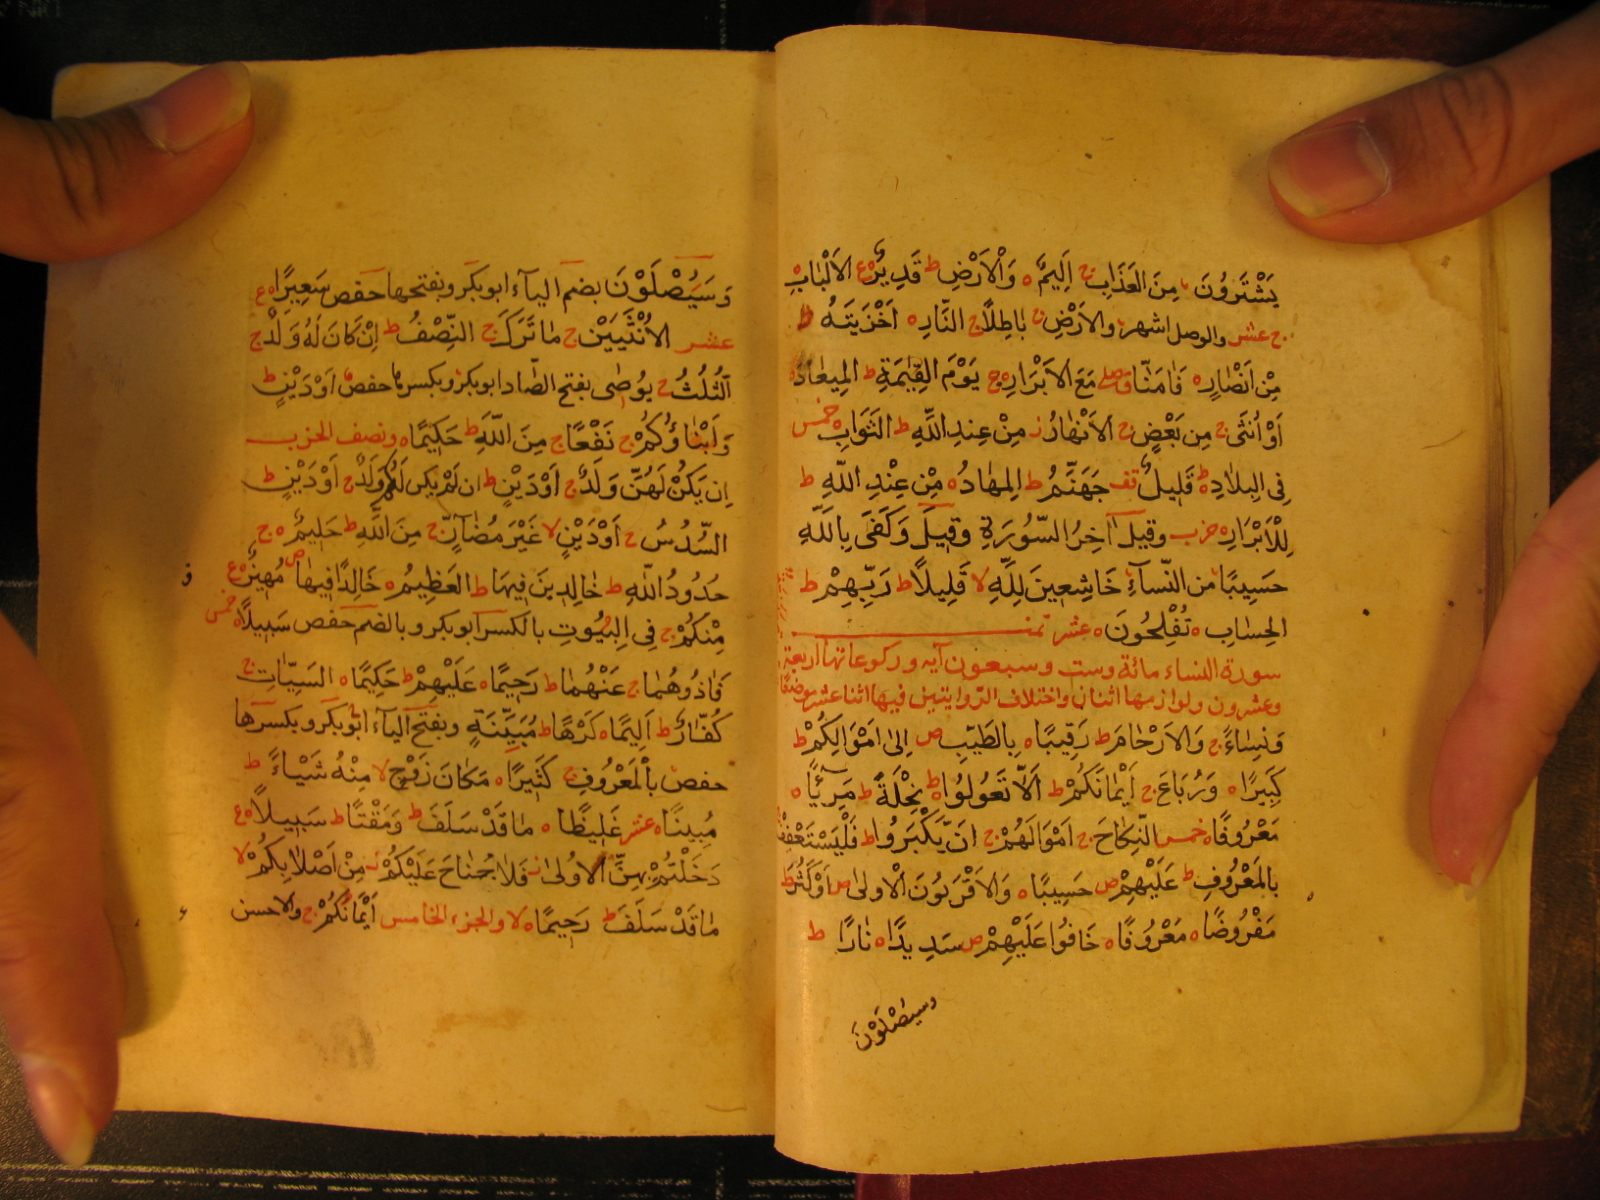 يَشْتَرُونَ ۰ مِنَ الْعَذَابِ ج اَلِيمٌ ه وَالْاَرْضِ ط قَدِيرٌ ع الْاَلْبَابِ
ج عشر والوصل اشهر والْاَرْضِ ج بَاطِلًا ج النَّارِ ه اَخْزَيْتَهُ ط
مِنْ اَنْصَارٍ ه فَاٰمَنَّا ق صلى مَعَ الْاَبْرَارِ ه ج يَوْمَ الْقِيٰمَةِ ط الْمِيعَادَ ه
اَوْ اُنْثٰى ج مِنْ بَعْضٍ ج الْاَنْهَارُ ز مِنْ عِنْدِ اللّٰهِ ط الثَّوَابِ خمس
فِى الْبِلَادِ ه ط قَلِيلٌ قف جَهَنَّمُ ط الْمِهَادُ ه مِنْ عِنْدِ اللّٰهِ ط
لِلْاَبْرَارِ ه حزب وقيل آخِرُ السُّورَةِ وقيل وَكَفٰى بِاللّٰهِ
حَسِيبًا من النّسآء خَاشِعِينَ لِلّٰهِ لا قَلِيلًا ط رَبِّهِمْ ط
الْحِسَابِ ه تُفْلِحُونَ ه عشر تمت
سورة النساء مائة وست وسبعون آيه وركوعاتها اربعة
وعشرون ولوازمها اثنان واختلاف الروايتين فيها اثنا عشر موضعًا
وَنِسَاءً ج وَالْاَرْحَامَ ط رَقِيبًا ه بِالطَّيِّبِ ص اِلٰى اَمْوَالِكُمْ ط
كَبِيرًا ه وَرُبَاعَ ج اَيْمَانُكُمْ ط اَلَّا تَعُولُوا ط نِحْلَةً ط مَرِيئًا ه
مَعْرُوفًا ه خمس النِّكَاحَ ج اَمْوَالَهُمْ ج اَنْ يَكْبَرُوا ط فَلْيَسْتَعْفِفْ
بِالْمَعْرُوفِ ط عَلَيْهِمْ ص حَسِيبًا ه وَالْاَقْرَبُونَ الاولى ص اَوْ كَثُرَ ط
مَفْرُوضًا ه مَعْرُوفًا ه خَافُوا عَلَيْهِمْ ص سَدِيدًا ه نَارًا ط
وسيصلون
وَسَيُصْلَوْنَ بضم اليآء ابوبكر وبفتحها حفص سَعِيرًا ه ع
عشر الْاُنْثَيَيْنِ ج مَا تَرَكَ ج النِّصْفُ ط اِنْ كَانَ لَهُ وَلَدٌ ج
الثُّلُثُ ج يُوصٰى بفتح الصاد ابوبكر وبكسرها حفص اَوْ دَيْنٍ ط
وَاَبْنَاؤُكُمْ ج نَفْعًا ج مِنَ اللّٰهِ ط حَكِيمًا ه ونصف الحزب
اِنْ يَكُنْ لَهُنَّ وَلَدٌ ج اَوْ دَيْنٍ ط اِنْ لَمْ يَكُنْ لَكُمْ وَلَدٌ ج اَوْ دَيْنٍ ط
السُّدُسُ ج اَوْ دَيْنٍ لا غَيْرَ مُضَآرٍّ ج مِنَ اللّٰهِ ط حَلِيمٌ ه ج
حُدُودُ اللّٰهِ ط خَالِدِينَ فِيهَا ط الْعَظِيمُ ه خَالِدًا فِيهَا ص مُهِينٌ ع
مِنْكُمْ ج فِى الْبُيُوتِ بالكسر ابوبكر وبالضم حفص سَبِيلًا ه خمس
فَاٰذُوهُمَا ج عَنْهُمَا ط رَحِيمًا ه عَلَيْهِمْ ط حَكِيمًا ه السَّيِّاٰتِ ج
كُفَّارٌ ط اَلِيمًا ه كَرْهًا ط مُبَيِّنَةٍ وبفتح اليآء ابوبكر وبكسرها
حفص بِالْمَعْرُوفِ ج كَثِيرًا ه مَكَانَ زَوْجٍ لا مِنْهُ شَيْاءً ط
مُبِينًا ه عشر غَلِيظًا ه مَا قَدْ سَلَفَ ط وَمَقْتًا ط سَبِيلًا ه ع
دَخَلْتُمْ بِهِنَّ الاولى ز فَلَا جُنَاحَ عَلَيْكُمْ ز مِنْ اَصْلَابِكُمْ لا
مَا قَدْ سَلَفَ ط رَحِيمًا ه لا والجزء الخامس اَيْمَانُكُمْ ج والاحسن